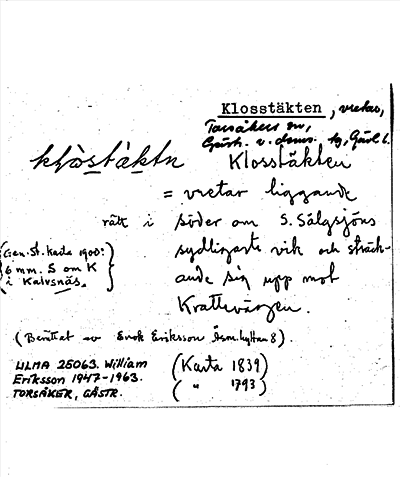 Klosstäkten, vretar,
Torsåkers sn,
Gästr. v. doms. tg, Gävl. l.
klòstäktn Klosstäkten
= vretar liggande
rätt i söder om S. Sälgsjöns
(Gen. St. karta 1900: sydligaste vik och sträck-
6 mm. S om K ande sig upp mot
i Kalvsnäs.) Krattevägen.
(Berättat av Erik Eriksson Åsmyttan 8).
ULMA 25063. William (Karta 1839)
Eriksson 1947-1963. ( " 1793)
TORSÅKER, GÄSTR.